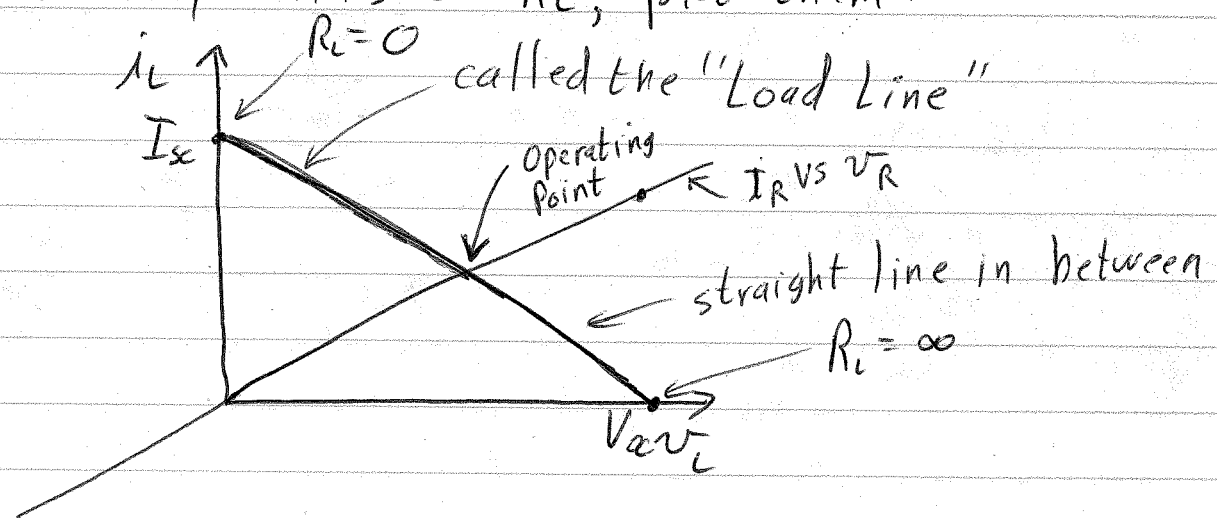 R_L = 0
i_L
called the "Load Line"
I_sc
Operating
Point
I_R vs v_R
straight line in between
R_L = ∞
V_oc v_L